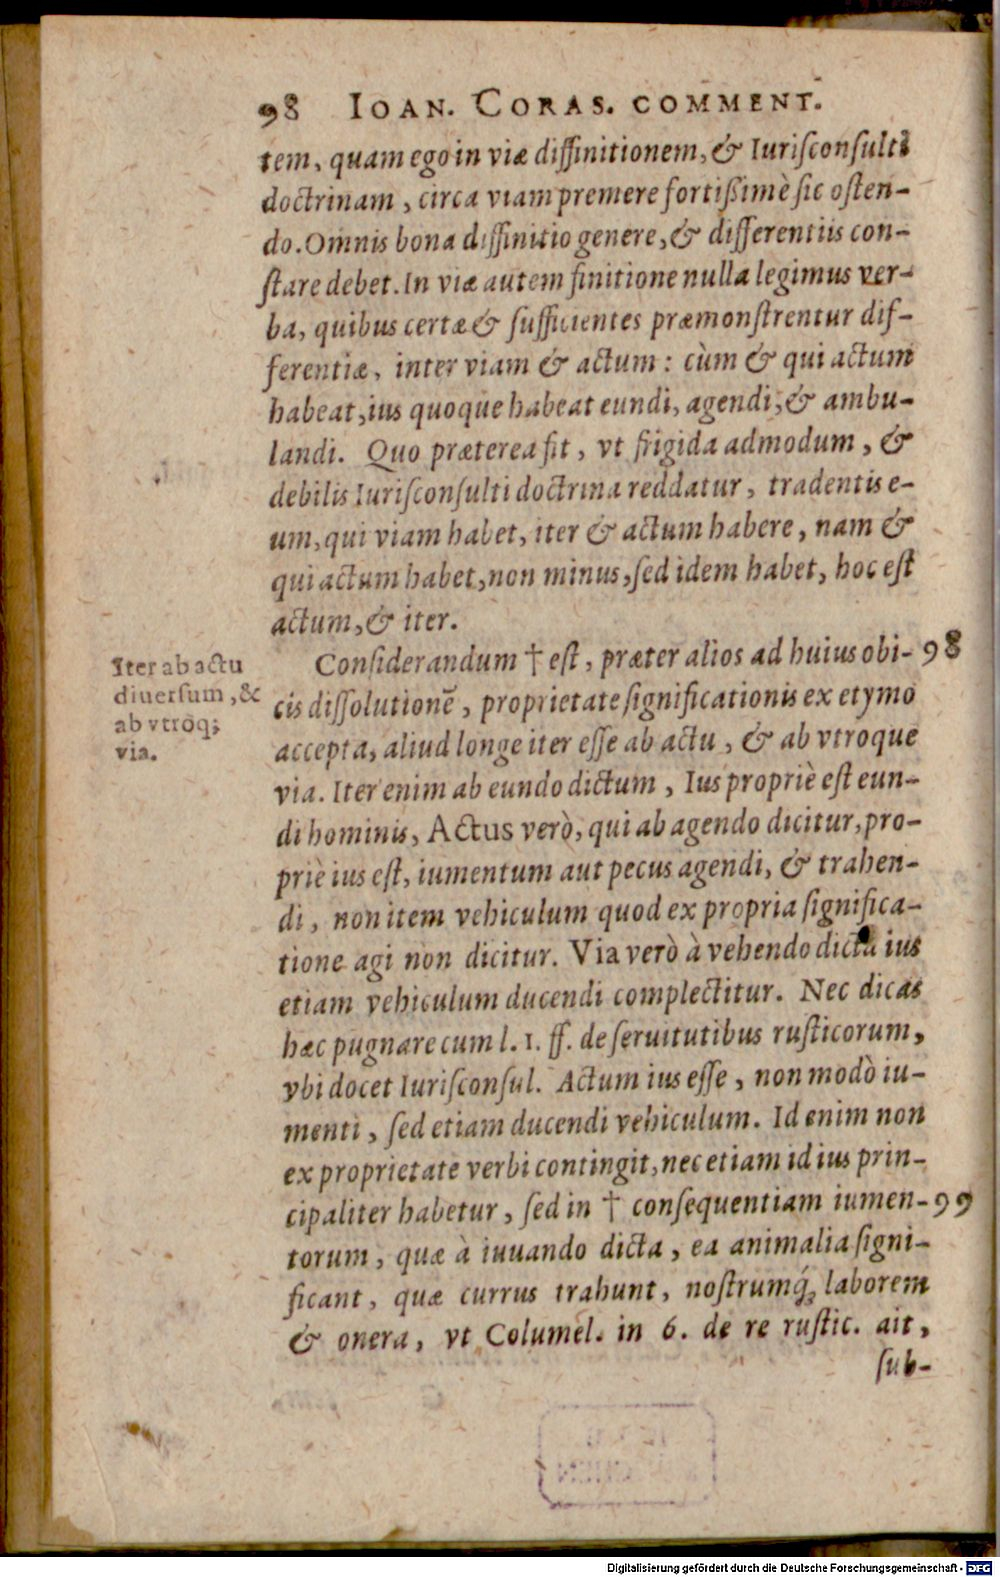 98 IOAN. CORAS. COMMENT.
tem, quam ego in viæ diffinitionem, & Iuriſconſulti
doctrinam, circa viam premere fortißimè ſic oſten-
do. Omnis bona diffinitio genere, & differentiis con-
ſtare debet. In viæ autem finitione nulla legimus ver-
ba, quibus certæ & ſufficientes præmonſtrentur dif-
ferentiæ, inter viam & actum: cùm & qui actum
habeat, ius quoque habeat eundi, agendi, & ambu-
landi. Quo præterea fit, vt frigida admodum, &
debilis Iuriſconſulti doctrina reddatur, tradentis e-
um, qui viam habet, iter & actum habere, nam &
qui actum habet, non minus, ſed idem habet, hoc eſt
actum, & iter.
Conſiderandum † eſt, præter alios ad huius obi- 98
cis diſſolutionē, proprietate ſignificationis ex etymo
accepta, aliud longe iter eſſe ab actu, & ab vtroque
via. Iter enim ab eundo dictum, Ius propriè eſt eun-
di hominis, Actus verò, qui ab agendo dicitur, pro-
priè ius eſt, iumentum aut pecus agendi, & trahen-
di, non item vehiculum quod ex propria ſignifica-
tione agi non dicitur. Via verò à vehendo dicta ius
etiam vehiculum ducendi complectitur. Nec dicas
hæc pugnare cum l. 1. ff. de ſeruitutibus ruſticorum,
vbi docet Iuriſconſul. Actum ius eſſe, non modò iu-
menti, ſed etiam ducendi vehiculum. Id enim non
ex proprietate verbi contingit, nec etiam id ius prin-
cipaliter habetur, ſed in † conſequentiam iumen- 99
torum, quæ à iuuando dicta, ea animalia ſigni-
ficant, quæ currus trahunt, noſtrumq́; laborem
& onera, vt Columel. in 6. de re ruſtic. ait,
ſub-
Iter ab actu
diuerſum, &
ab vtroq;
via.
Digitalisierung gefördert durch die Deutsche Forschungsgemeinschaft - DFG